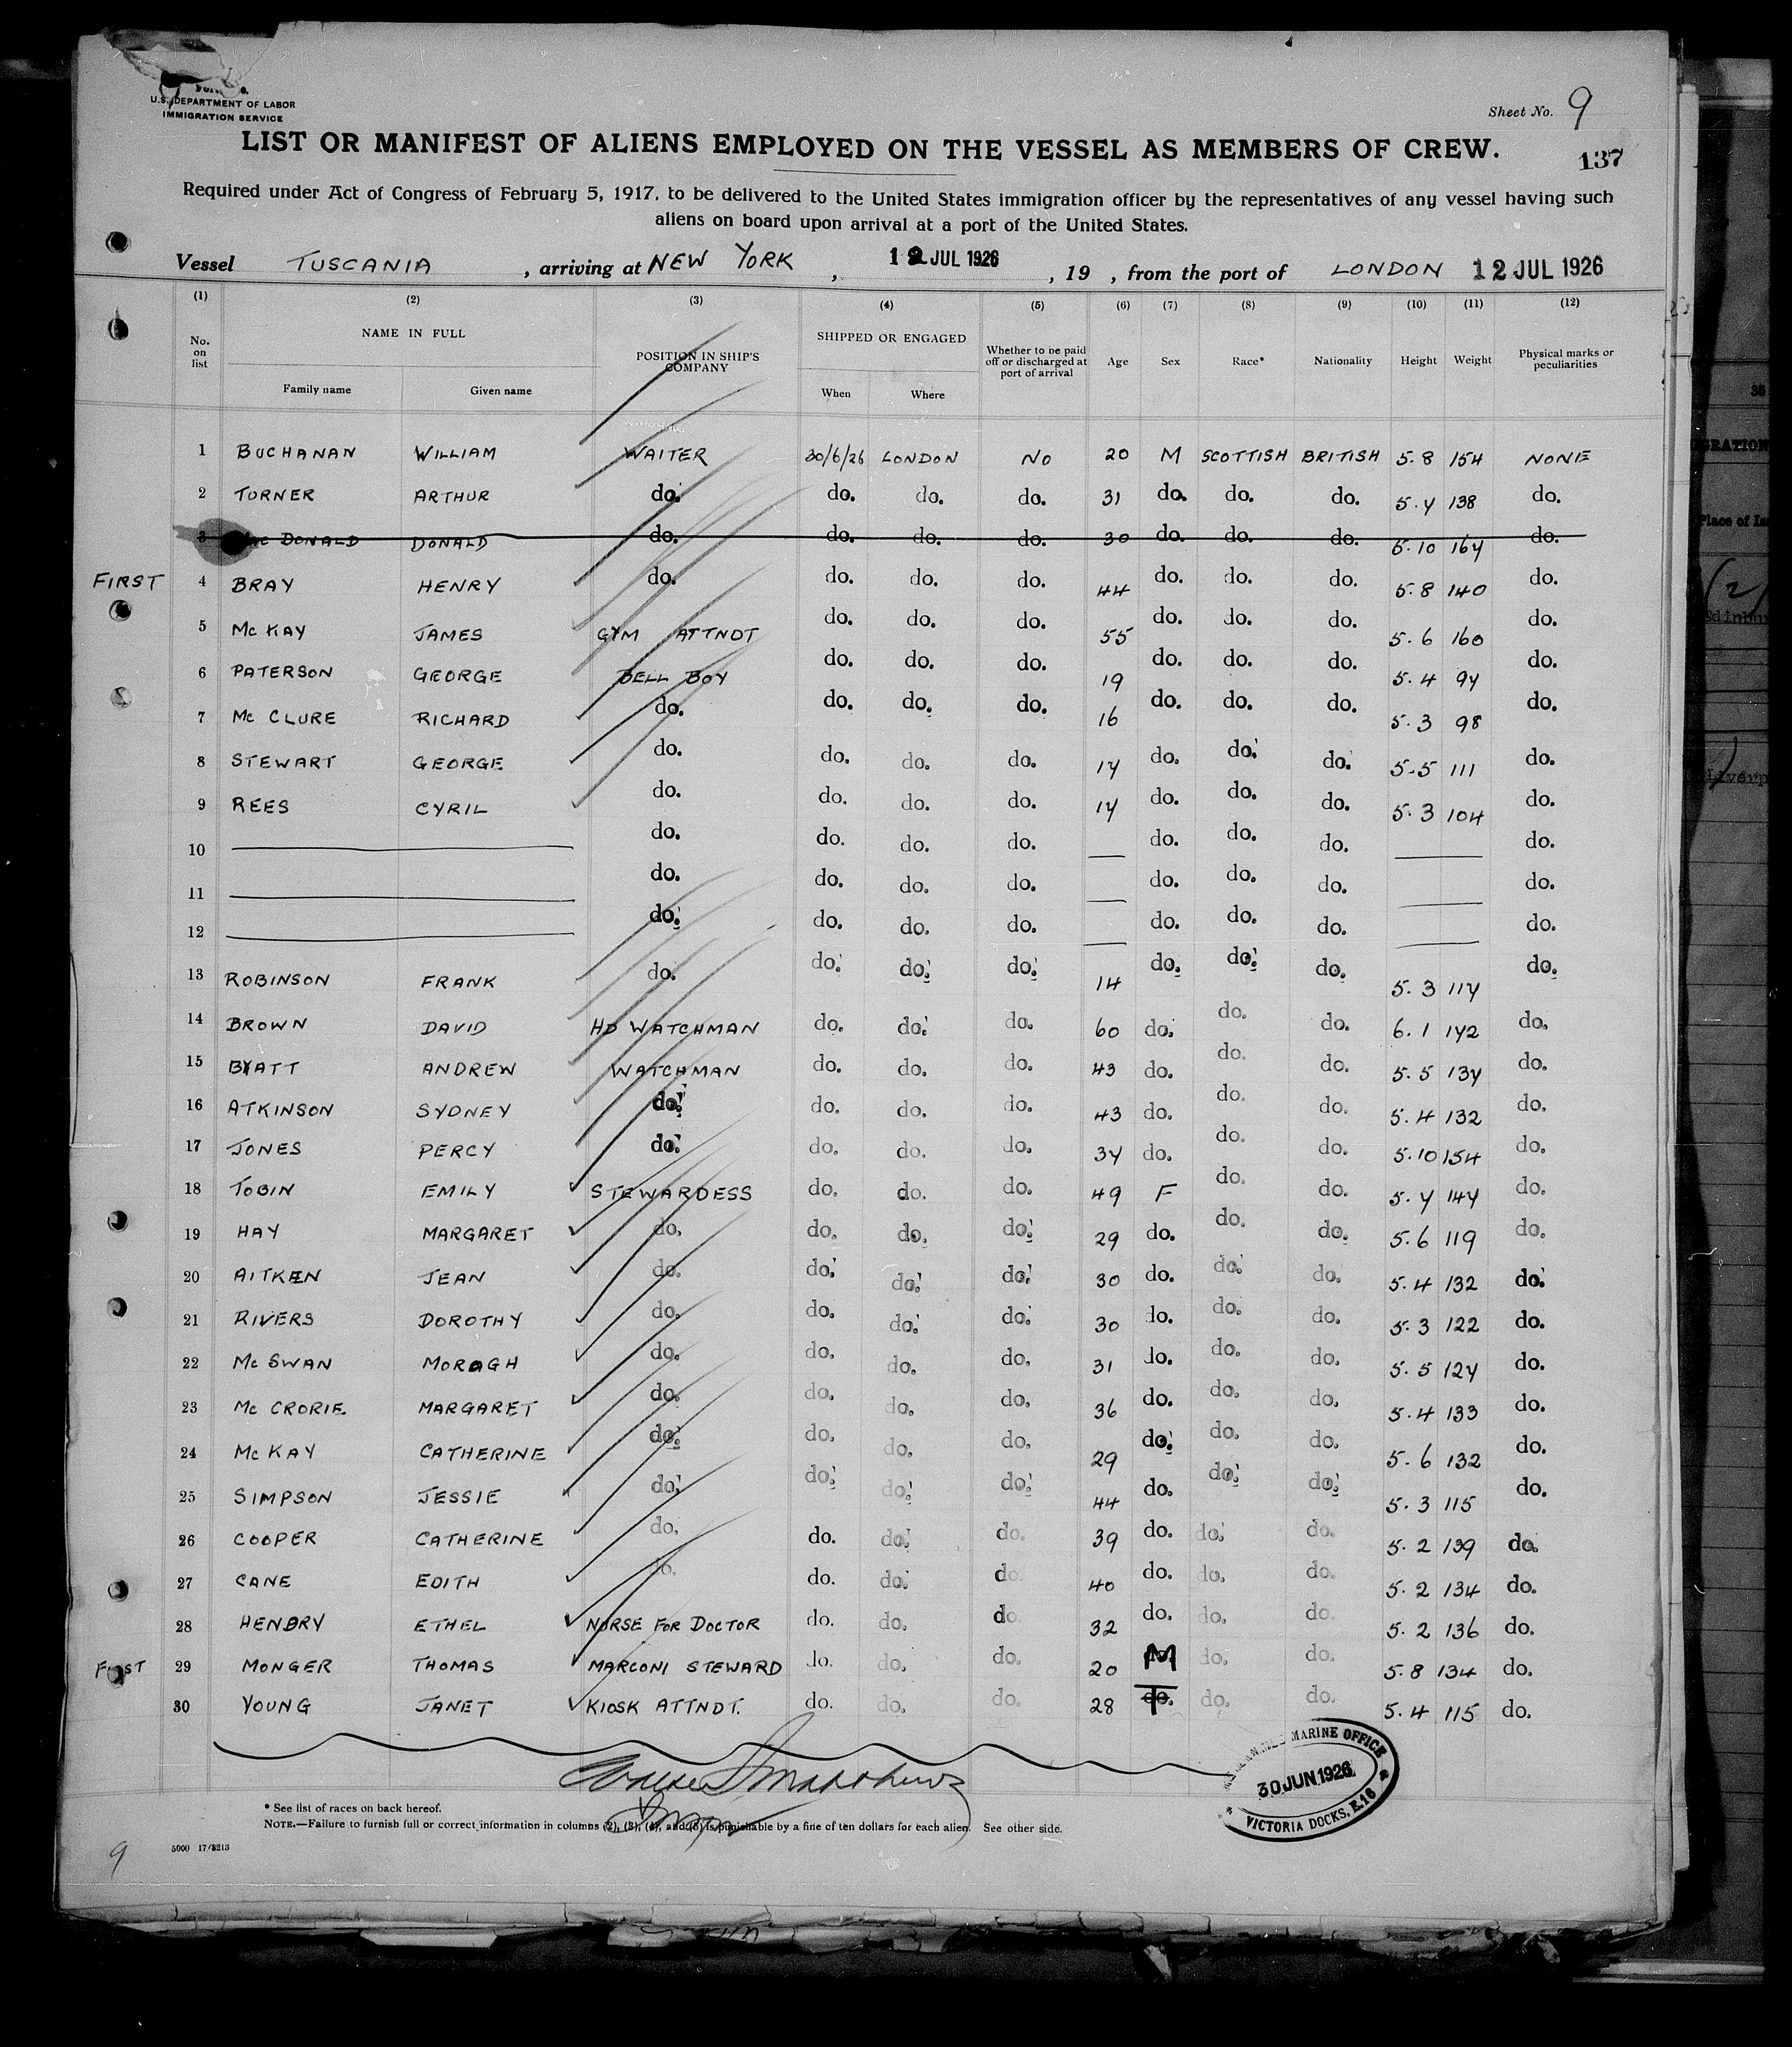 U.S. DEPARTMENT OF LABOR
IMMIGRATION SERVICE
Sheet No. 9
LIST OR MANIFEST OF ALIENS EMPLOYED ON THE VESSEL AS MEMBERS OF CREW.
137
Required under Act of Congress of February 5, 1917, to be delivered to the United States immigration officer by the representatives of any vessel having such
aliens on board upon arrival at a port of the United States.
Vessel TUSCANIA , arriving at NEW YORK , 12 JUL 1926 , 19 , from the port of LONDON 12 JUL 1926
(1) (2) (3) (4) (5) (6) (7) (8) (9) (10) (11) (12)
No. on list NAME IN FULL POSITION IN SHIP'S COMPANY SHIPPED OR ENGAGED Whether to be paid off or discharged at port of arrival Age Sex Race* Nationality Height Weight Physical marks or peculiarities
Family name Given name When Where
1 BUCHANAN WILLIAM WAITER 30/6/26 LONDON NO 20 M SCOTTISH BRITISH 5.8 154 NONE
2 TURNER ARTHUR do. do. do. do. 31 do. do. do. 5.7 138 do.
3 Mc DONALD DONALD do. do. do. do. 30 do. do. do. 5.10 167 do.
FIRST 4 BRAY HENRY do. do. do. do. 44 do. do. do. 5.8 140 do.
5 Mc KAY JAMES GYM ATTNDT do. do. do. 55 do. do. do. 5.6 160 do.
6 PATERSON GEORGE BELL BOY do. do. do. 19 do. do. do. 5.4 97 do.
7 Mc CLURE RICHARD do. do. do. do. 16 do. do. do. 5.3 98 do.
8 STEWART GEORGE do. do. do. do. 17 do. do. do. 5.5 111 do.
9 REES CYRIL do. do. do. do. 17 do. do. do. 5.3 104 do.
10 do. do. do. do. do. do. do. do.
11 do. do. do. do. do. do. do. do.
12 do. do. do. do. do. do. do. do.
13 ROBINSON FRANK do. do. do. do. 14 do. do. do. 5.3 117 do.
14 BROWN DAVID HD WATCHMAN do. do. do. 60 do. do. do. 6.1 172 do.
15 BYATT ANDREW WATCHMAN do. do. do. 43 do. do. do. 5.5 137 do.
16 ATKINSON SYDNEY do. do. do. do. 43 do. do. do. 5.4 132 do.
17 JONES PERCY do. do. do. do. 37 do. do. do. 5.10 154 do.
18 TOBIN EMILY STEWARDESS do. do. do. 49 F do. do. 5.7 147 do.
19 HAY MARGARET do. do. do. do. 29 do. do. do. 5.6 119 do.
20 AITKEN JEAN do. do. do. do. 30 do. do. do. 5.4 132 do.
21 RIVERS DOROTHY do. do. do. do. 30 do. do. do. 5.3 122 do.
22 Mc SWAN MORAGH do. do. do. do. 31 do. do. do. 5.5 127 do.
23 Mc CRORIE MARGARET do. do. do. do. 36 do. do. do. 5.4 133 do.
24 Mc KAY CATHERINE do. do. do. do. 29 do. do. do. 5.6 132 do.
25 SIMPSON JESSIE do. do. do. do. 44 do. do. do. 5.3 115 do.
26 COOPER CATHERINE do. do. do. do. 39 do. do. do. 5.2 139 do.
27 CANE EDITH do. do. do. do. 40 do. do. do. 5.2 134 do.
28 HENDRY ETHEL NURSE FOR DOCTOR do. do. do. 32 do. do. do. 5.2 136 do.
FIRST 29 MONGER THOMAS MARCONI STEWARD do. do. do. 20 M do. do. 5.8 134 do.
30 YOUNG JANET KIOSK ATTNDT. do. do. do. 28 do. do. do. 5.4 115 do.
MARINE OFFICE
30 JUN 1926
VICTORIA DOCKS, E.16
* See list of races on back hereof.
NOTE.—Failure to furnish full or correct information in columns (2), (3), (4), and (5) is punishable by a fine of ten dollars for each alien. See other side.
9
5000 17/8213